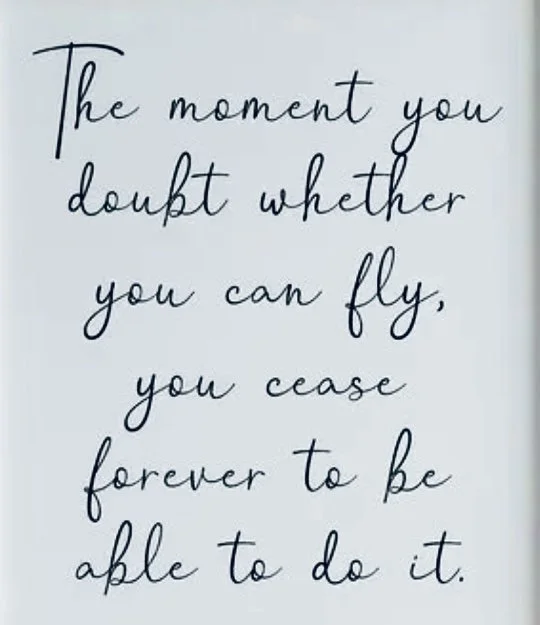 The moment you
doubt whether
you can fly,
you cease
forever to be
able to do it.